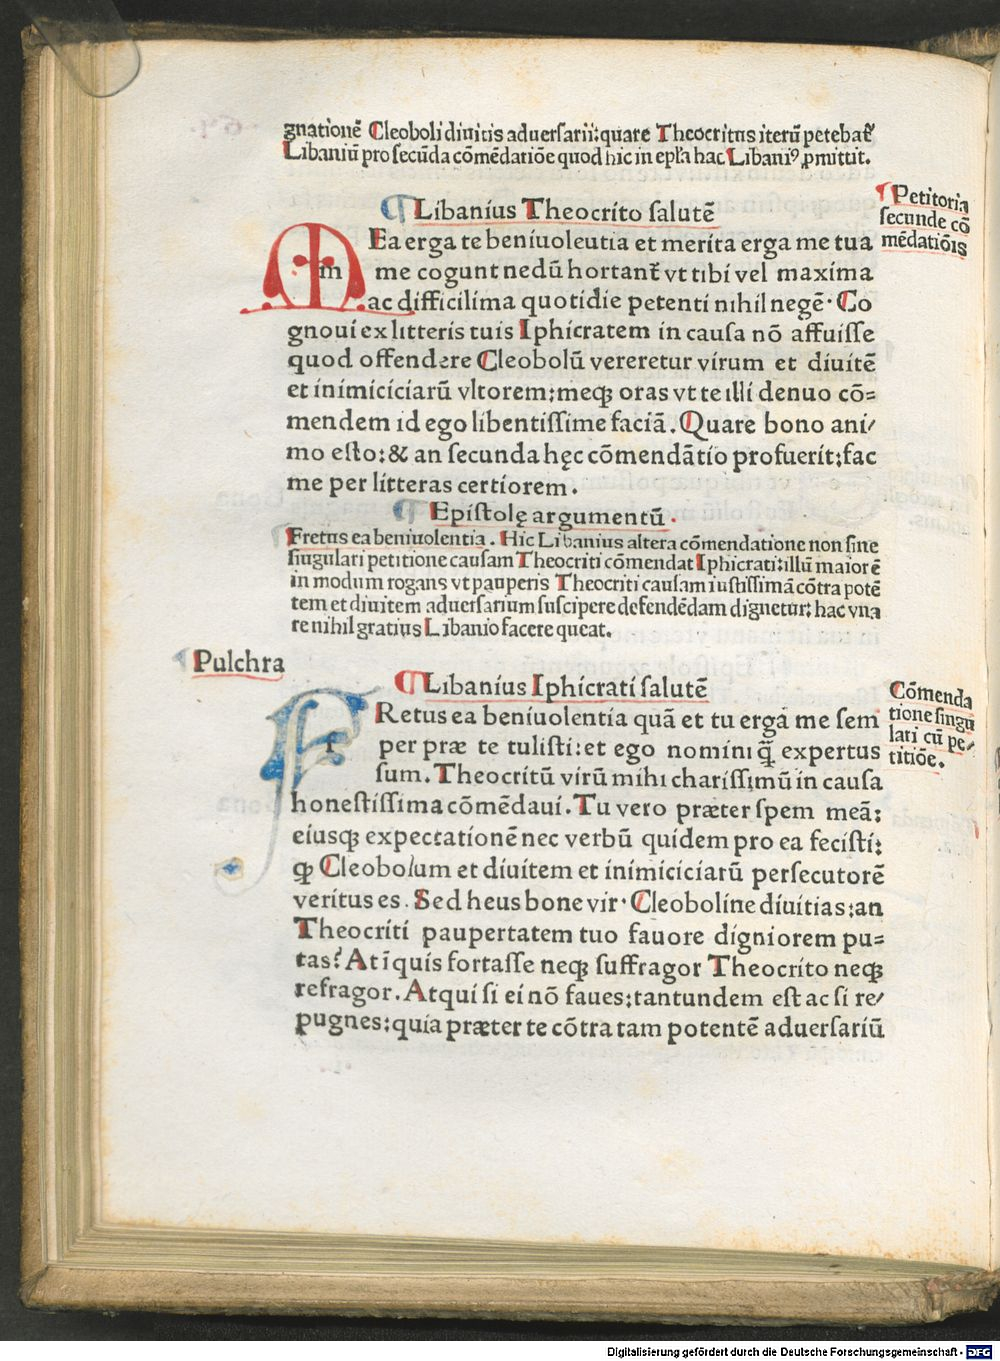 gnationē Cleoboli diuitis aduersarii: quare Theocritus iterū petebat̄
Libaniū pro secūda cōmēdatiōe quod hic in epła hac Libaniꝰ ꝓmittit.
¶ Libanius Theocrito salutē
¶ Petitoria
secunde cō
mēdatiōis
MEa erga te beniuoleutia et merita erga me tua
m me cogunt nedū hortant̄ vt tibi vel maxima
ac difficilima quotidie petenti nihil negē. Co
gnoui ex litteris tuis Iphicratem in causa nō affuisse
quod offendere Cleobolū vereretur virum et diuitē
et inimiciciarū vltorem: meqꝫ oras vt te illi denuo cō=
mendem id ego libentissime faciā. Quare bono ani/
mo esto: & an secunda hęc cōmendātio profuerit: fac
me per litteras certiorem.
¶ Epistolę argumentū.
¶ Fretus ea beniuolentia. Hic Libanius altera cōmendatione non sine
singulari petitione causam Theocriti cōmendat Iphicrati: illū maiorē
in modum rogans vt pauperis Theocriti causam iustissimā cōtra potē
tem et diuitem aduersarium suscipere defendēdam dignetur: hac vna
re nihil gratius Libanio facere queat.
¶ Pulchra
¶ Libanius Iphicrati salutē
Cōmenda
tione singu
lari cū pe/
titiōe.
FRetus ea beniuolentia quā et tu erga me sem
f per præ te tulisti: et ego nomini q̄ expertus
sum. Theocritū virū mihi charissimū in causa
honestissima cōmēdaui. Tu vero præter spem meā:
eiusqꝫ expectationē nec verbū quidem pro ea fecisti:
ꝙ Cleobolum et diuitem et inimiciciarū persecutorē
veritus es. Sed heus bone vir. Cleoboline diuitias: an
Theocriti paupertatem tuo fauore digniorem pu=
tas? At īquis fortasse neqꝫ suffragor Theocrito neqꝫ
refragor. Atqui si ei nō faues: tantundem est ac si re/
pugnes: quia præter te cōtra tam potentē aduersariū
Digitalisierung gefördert durch die Deutsche Forschungsgemeinschaft - DFG